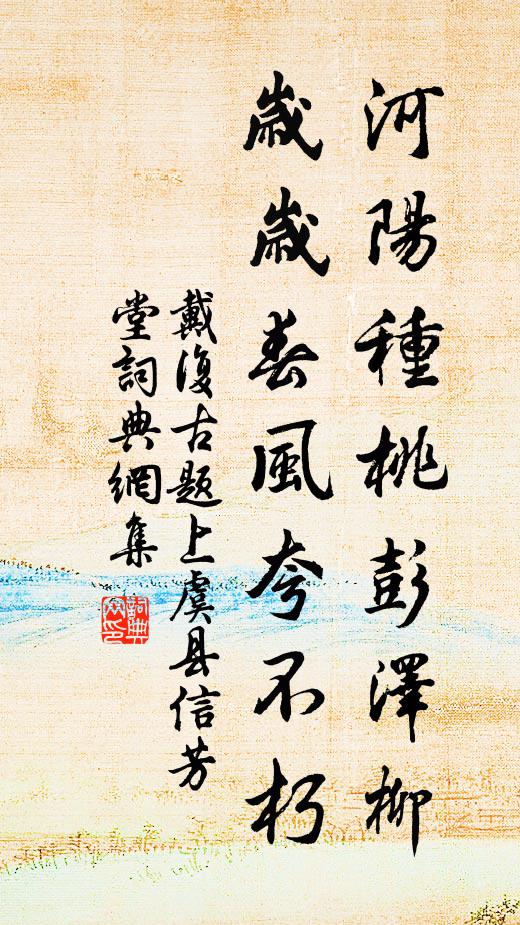 河陽種桃彭澤柳
歲歲春風夸不朽
戴復古题上虞县信芳
堂詞典網集